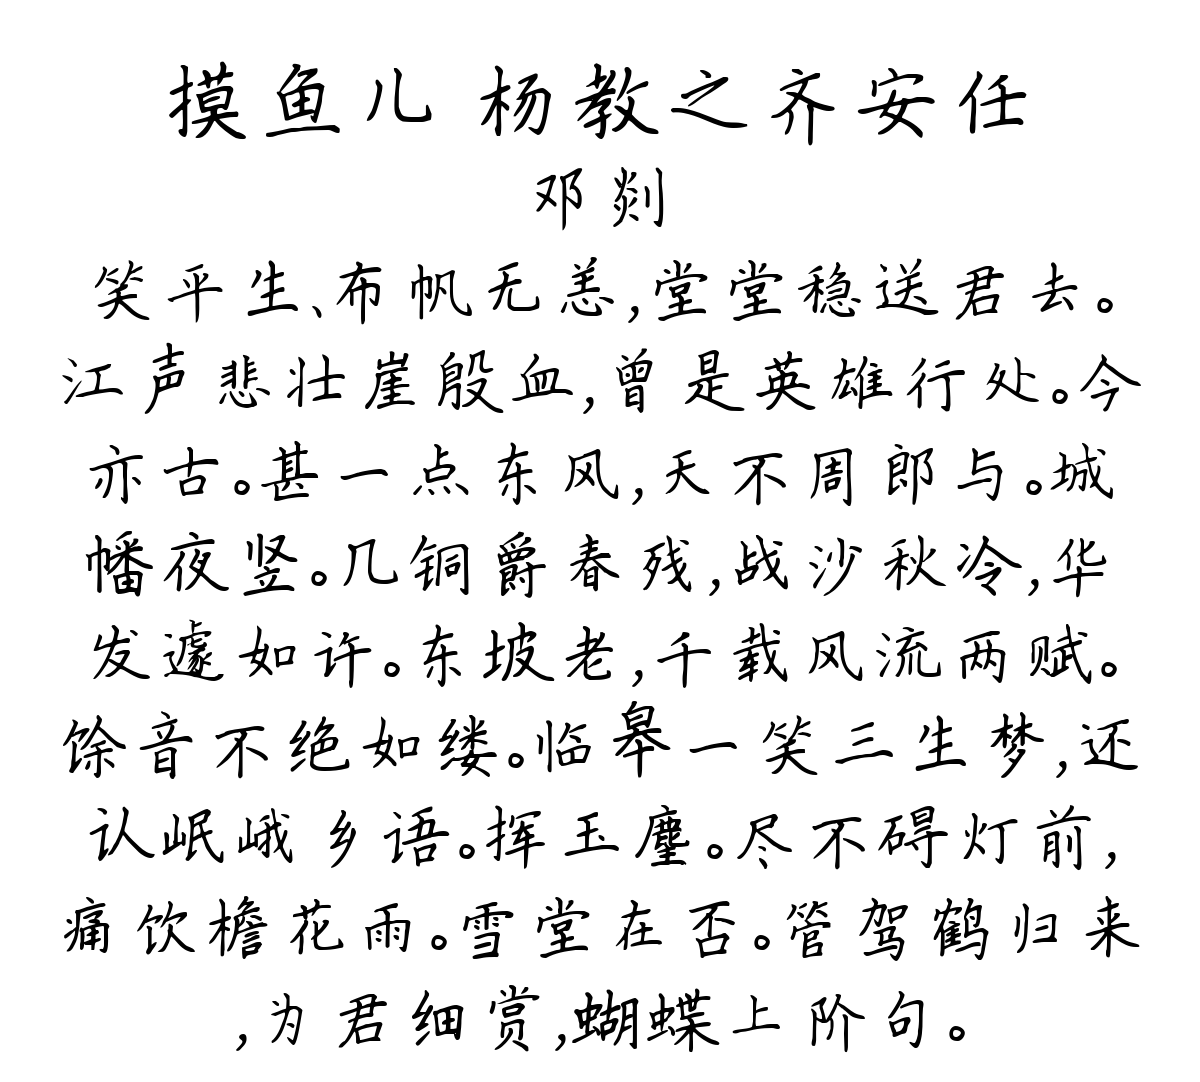 摸鱼儿 杨教之齐安任
邓剡
笑平生、布帆无恙,堂堂稳送君去。
江声悲壮崖殷血,曾是英雄行处。今
亦古。甚一点东风,天不周郎与。城
幡夜竖。几铜爵春残,战沙秋冷,华
发遽如许。东坡老,千载风流两赋。
馀音不绝如缕。临皋一笑三生梦,还
认岷峨乡语。挥玉麈。尽不碍灯前,
痛饮檐花雨。雪堂在否。管驾鹤归来
,为君细赏,蝴蝶上阶句。